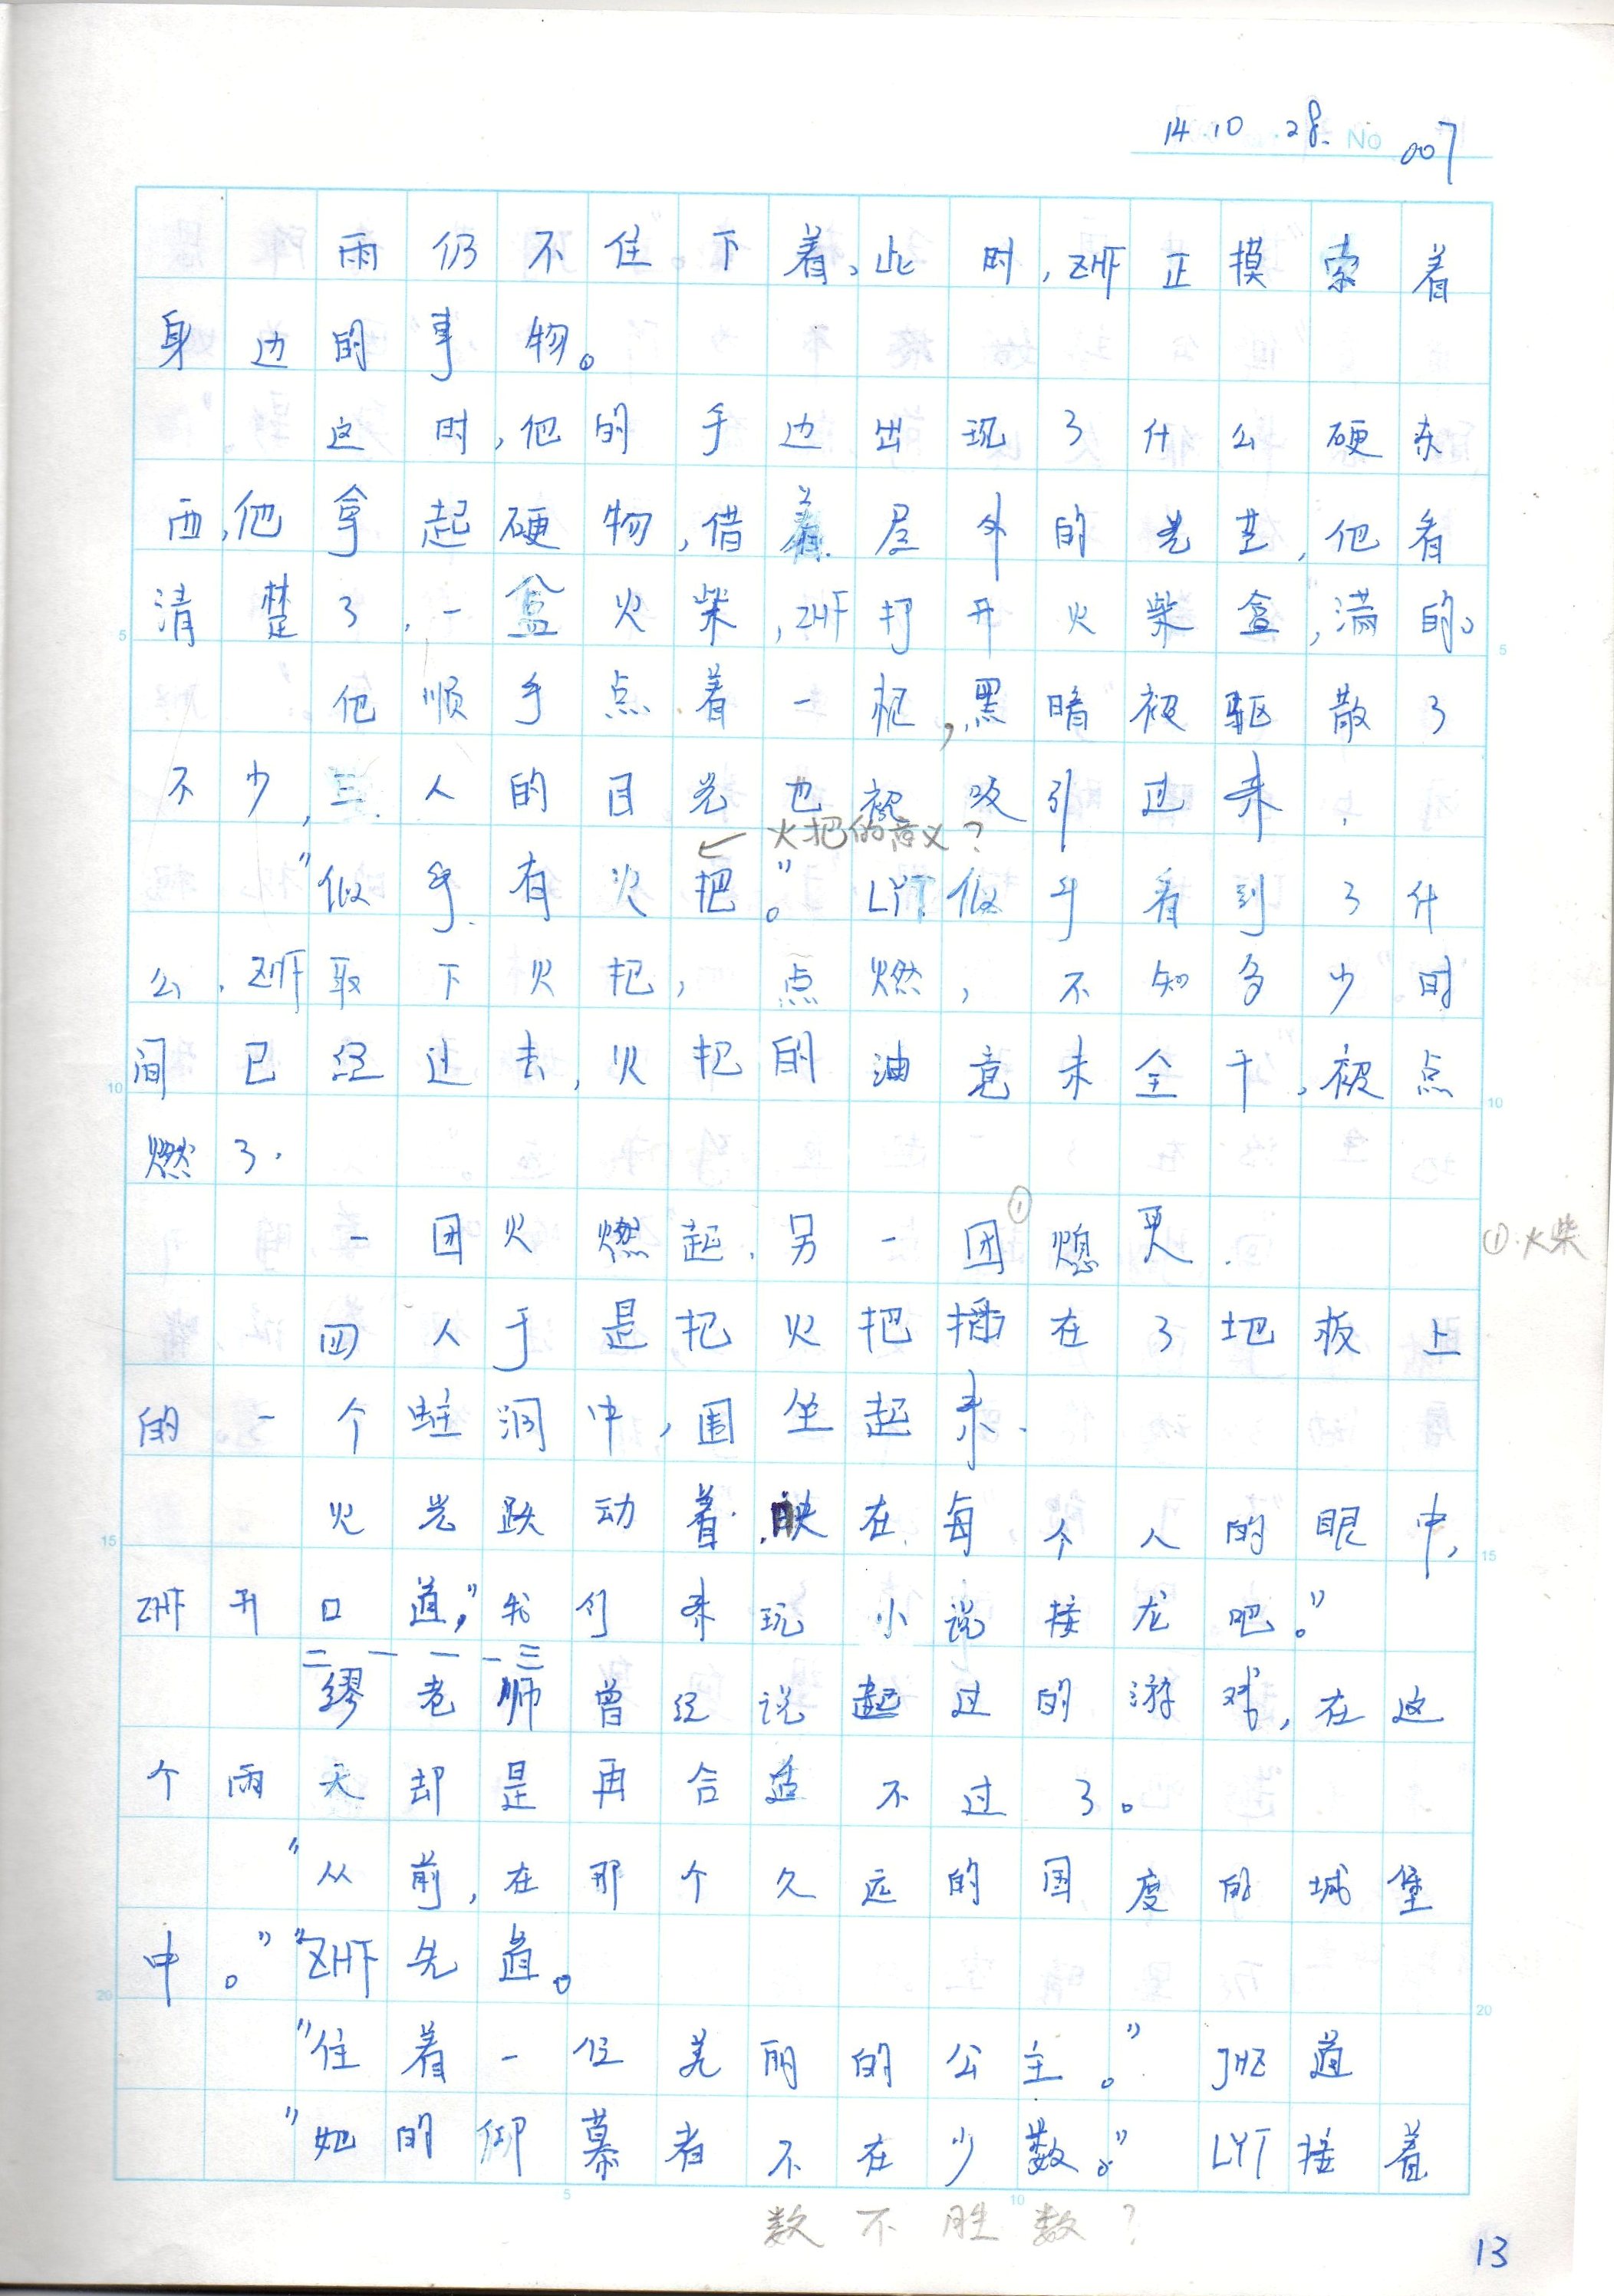 14.10.28. No 007
雨仍不住下着,此时,ZHF正摸索着
身边的事物。
这时,他的手边出现了什么硬东
西,他拿起硬物,借着屋外的光芒,他看
清楚了,一盒火柴,ZHF打开火柴盒,满的。
他顺手点着一根,黑暗被驱散了
不少,三人的目光也被吸引过来.
← 火把的意义?
"似乎有火把。"LYT似乎看到了什
么.ZHF取下火把,点燃,不知多少时
间已经过去,火把的油竟未全干,被点
燃了.
一团火燃起.另一团①熄灭.
①.火柴
四人于是把火把插在了地板上
的一个蛀洞中,围坐起来.
火光跃动着.映在每个人的眼中,
ZHF开口道,"我们来玩小说接龙吧。"
二一一一三
缪老师曾经说起过的游戏,在这
个雨天却是再合适不过了。
"从前,在那个久远的国度的城堡
中。"ZHF先道。
"住着一位美丽的公主。"JHZ道
"她的仰慕者不在少数。"LYT接着
数不胜数?
13
5
10
15
20
5
10
15
20
5
10